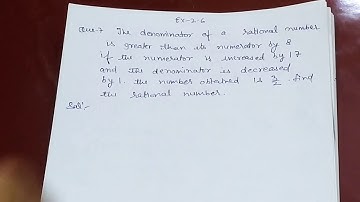 Ex-2.6
Que-7 The denominator of a rational number
is greater than its numerator by 8
if the numerator is increased by 17
and the denominator is decreased
by 1. the number obtained is 3/2. find
the rational number.
Solⁿ:-